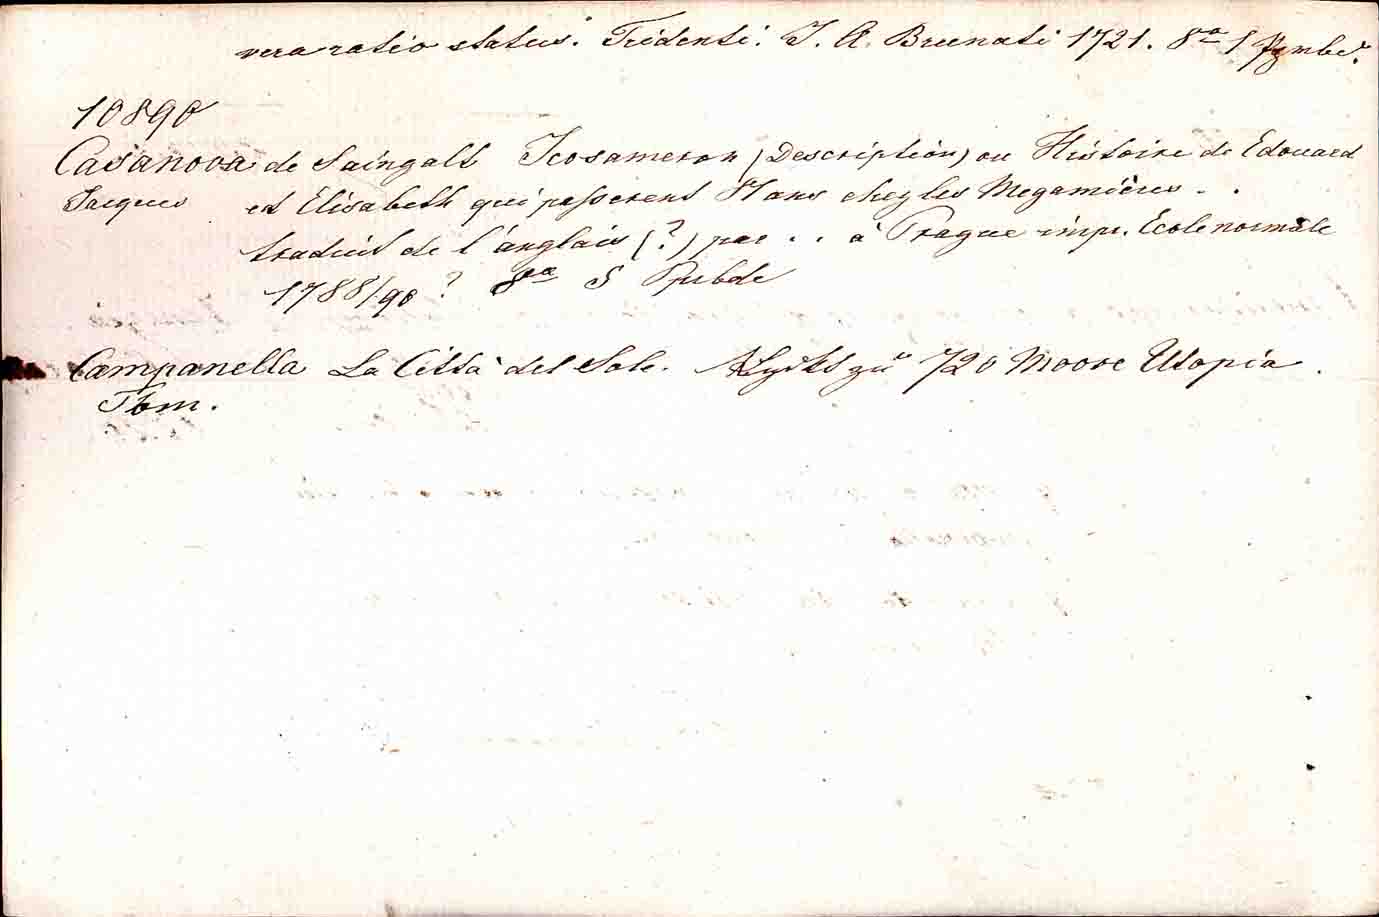 vera ratio status. Tridenti. J. A. Brunati 1721. 8va 1
10890
Casanova de Saingalt Icosameron (Description) ou Histoire de Edouard
Jacques et Elisabeth qui passerent 81 ans chez les Megamières . .
traduit de l'anglais (?) par . . à Prague impr. Ecole normale
1788/90 ? 8va 5
Campanella La Città del Sole. zu 720 Moore Utopia .
Thm.